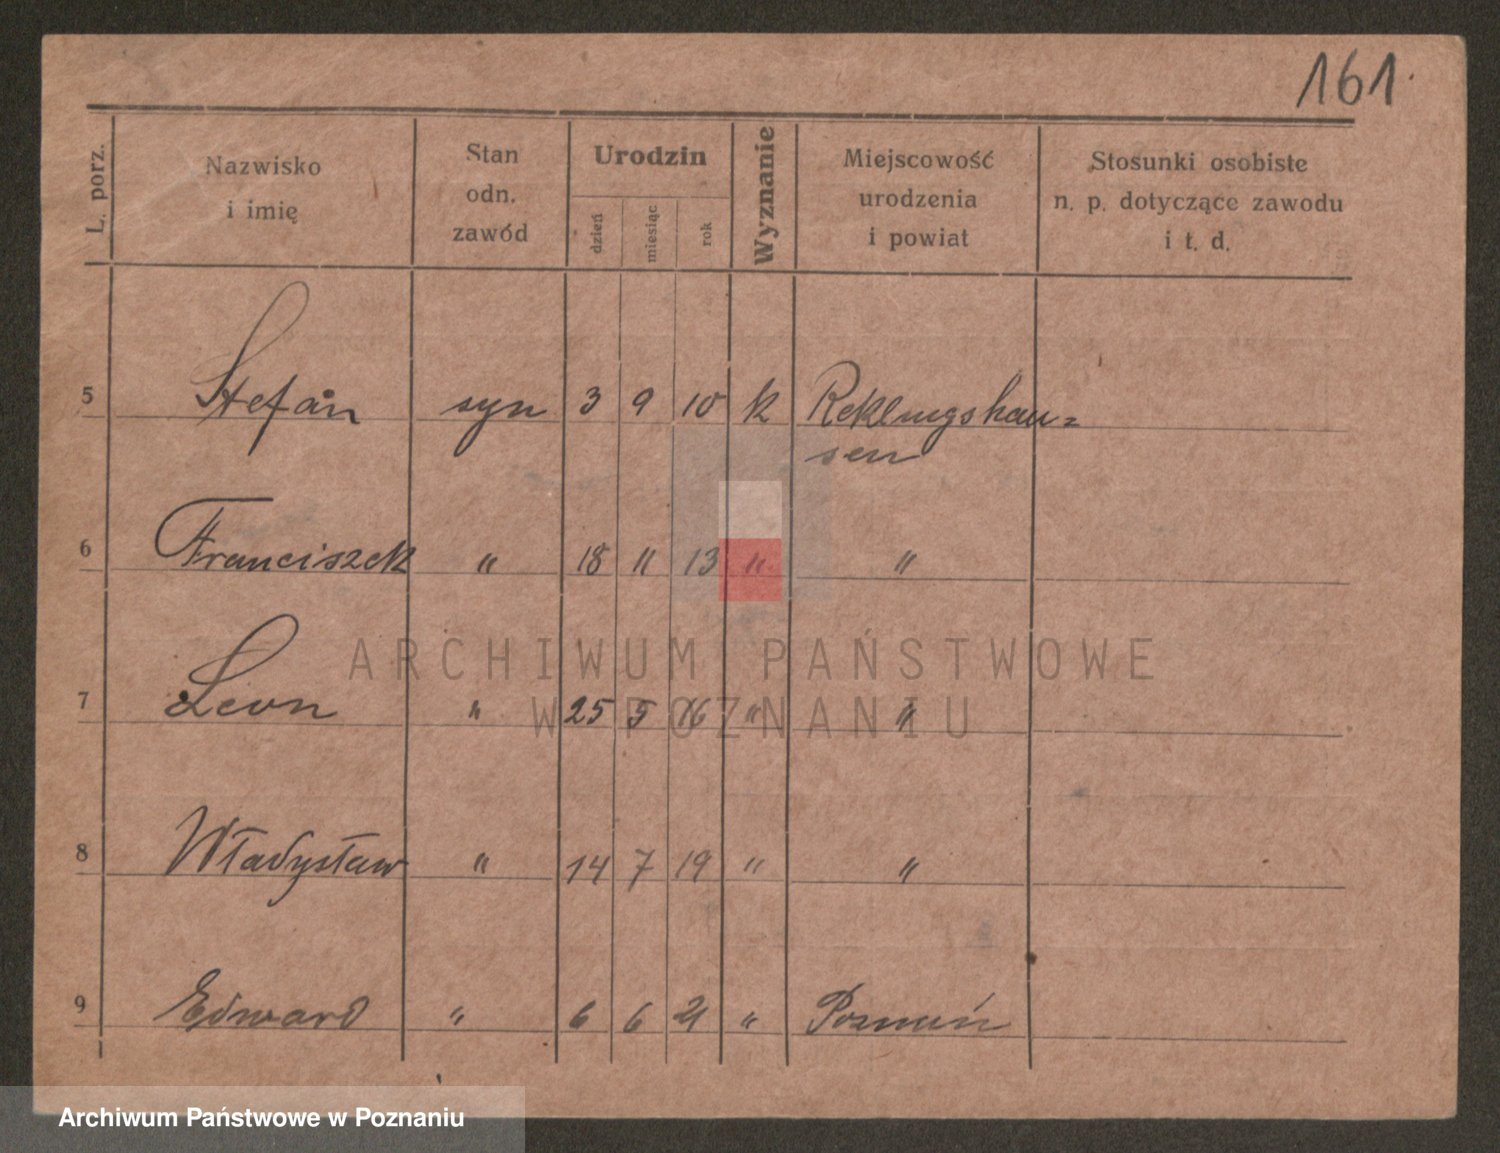 161.
L. porz.
Nazwisko
i imię
Stan
odn.
zawód
Urodzin
dzień
miesiąc
rok
Wyznanie
Miejscowość
urodzenia
i powiat
Stosunki osobiste
n. p. dotyczące zawodu
i t. d.
5 Stefan syn 3 9 10 k Reklingshau=
sen
6 Franciszek " 18 11 13 " "
7 Leon " 25 5 16 " "
8 Władysław " 14 7 19 " "
9 Edward " 6 6 21 " Poznań
ARCHIWUM PAŃSTWOWE
W POZNANIU
Archiwum Państwowe w Poznaniu